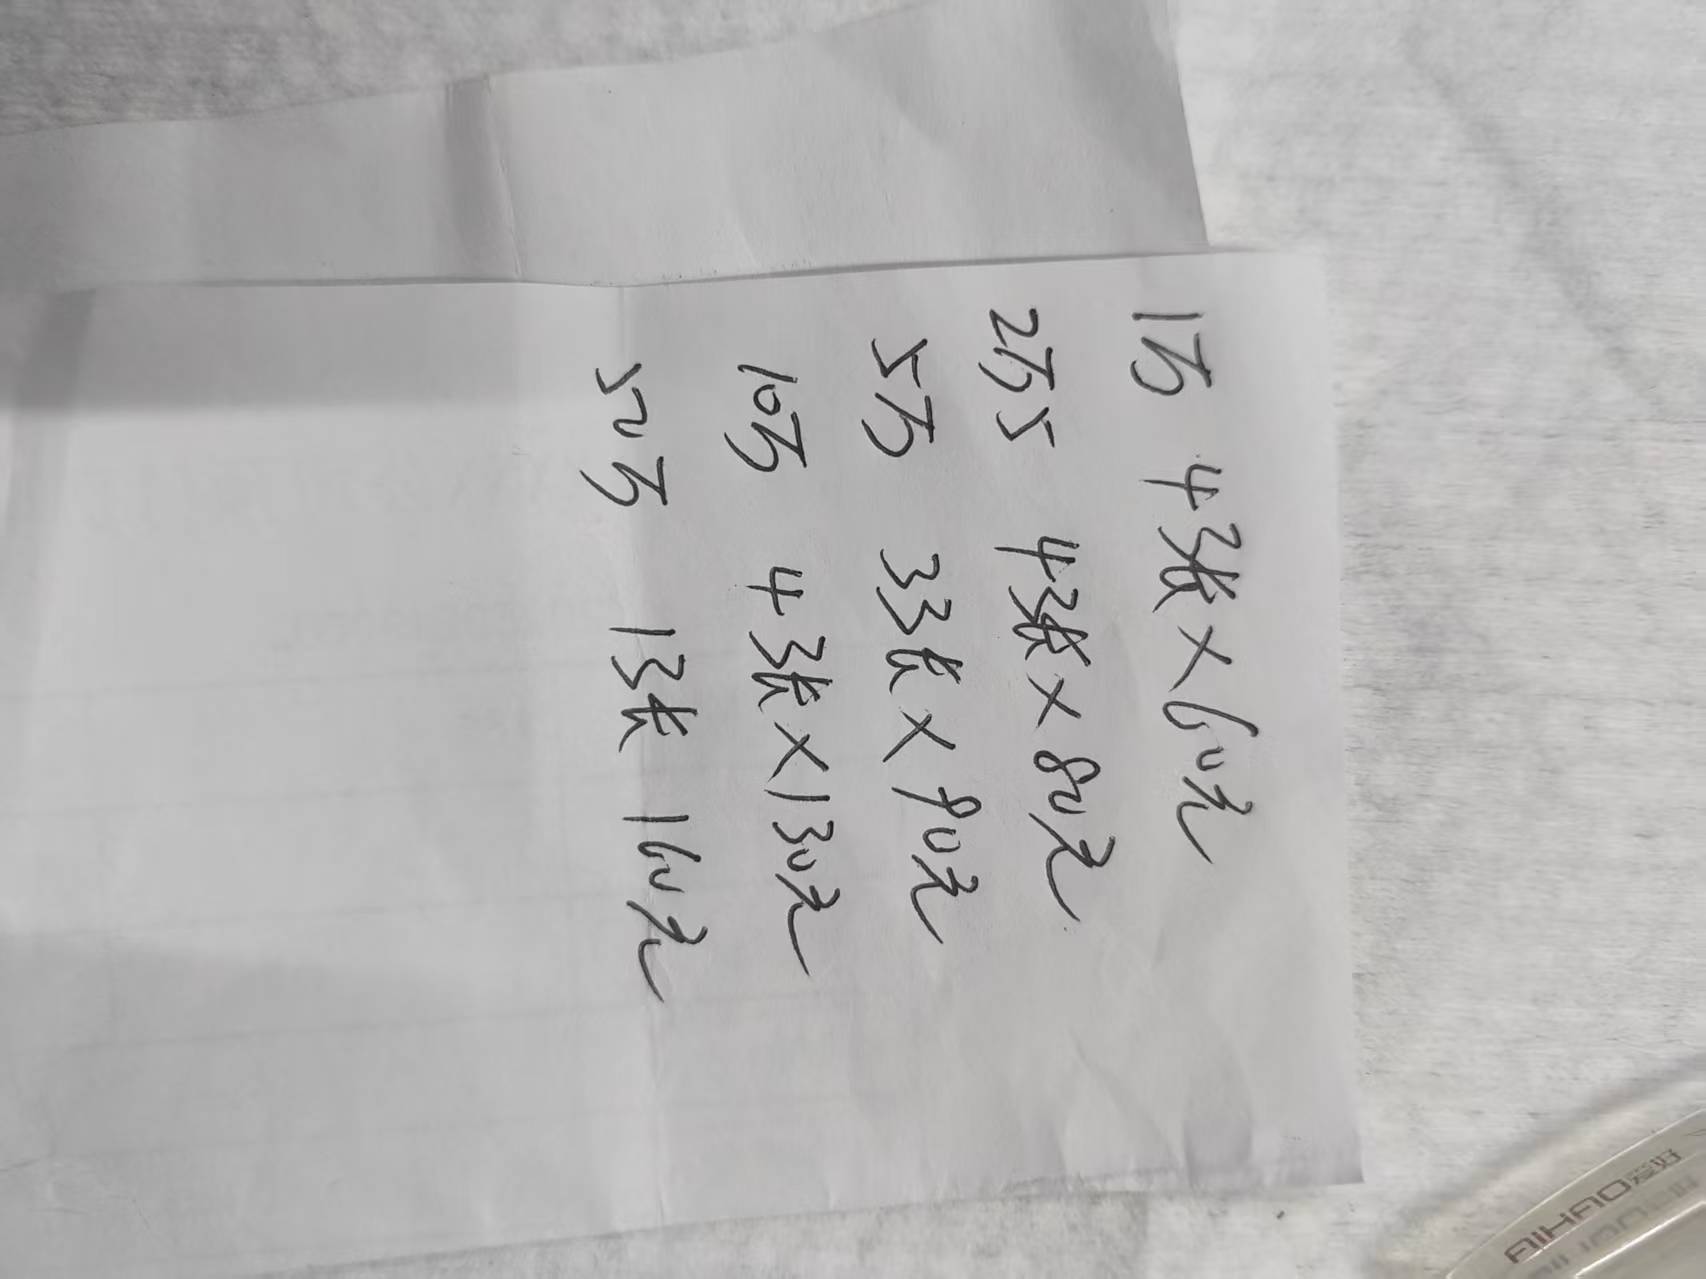 1万 4张×60元
2万5 4张×80元
5万 3张×90元
10万 4张×130元
50万 1张 160元
AIHAO爱好